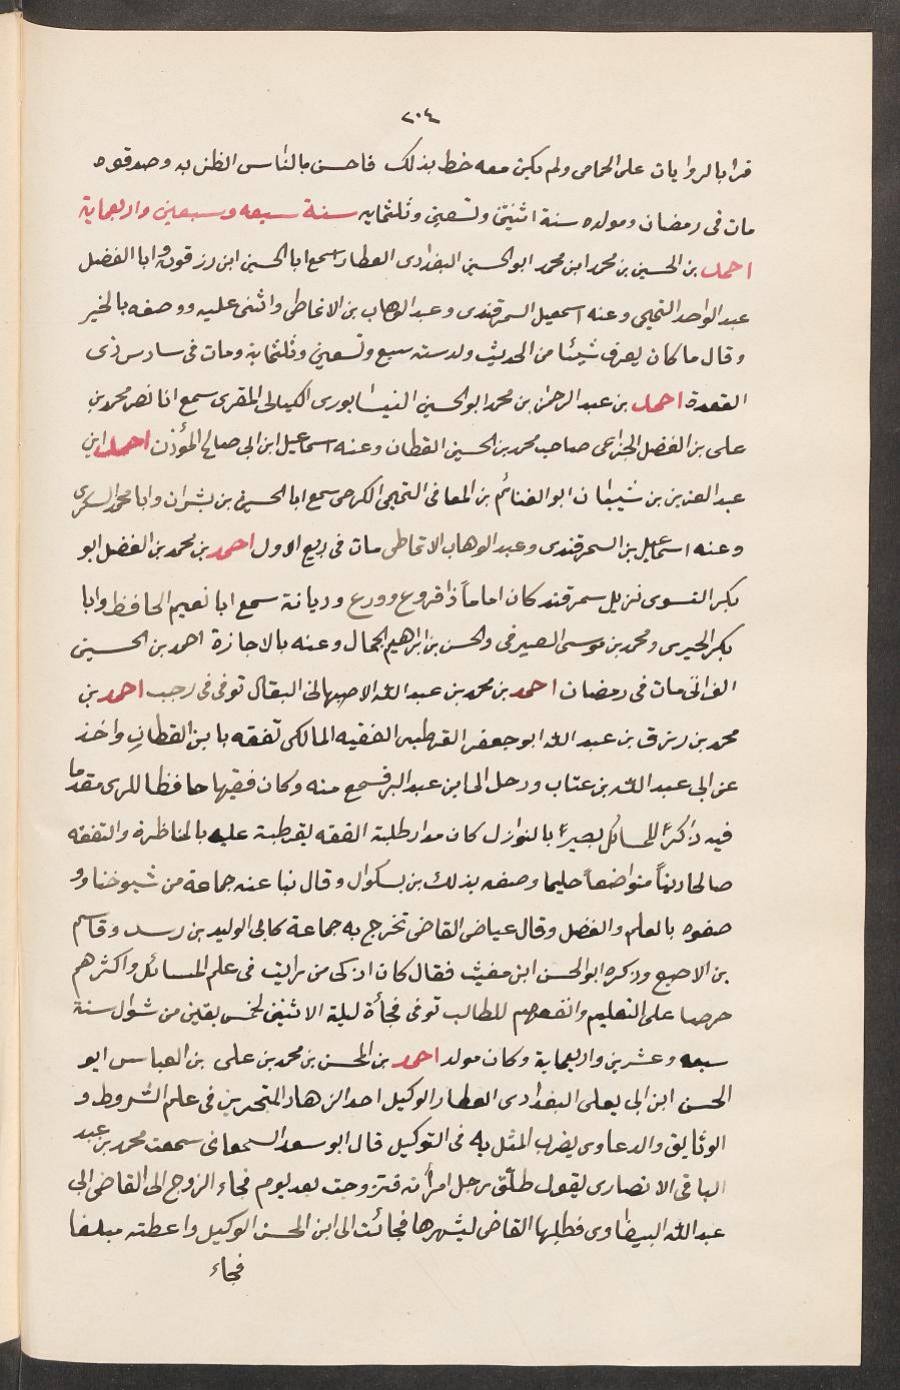 ٢٠٤
قرا بالروايات على الحمامى ولم يكن معه خط بذلك فاحسن بالناس الظن به وصدقوه
مات فى رمضان ومولده سنة اثنين وتسعين وثلثمايه سنة سبعه وسبعين واربعماية
احمد بن الحسين بن محمد ابن محمد ابو الحسين البغدادى العطار سمع ابا الحسين ابن رزقون وابا الفضل
عبد الواحد التميمى وعنه اسمعيل السمرقندى وعبد الوهاب بن الانماطى واثنى عليه ووصفه بالخير
وقال ما كان يعرف شيئا من الحديث ولد سنه سبع وتسعين وثلثماية ومات فى سادس ذى
القعدة احمد بن عبد الرحمن بن محمد ابو الحسين النيسابورى الكيالى المقرى سمع ابا نصر محمد بن
على بن الفضل الخزاعى صاحب محمد بن الحسين القطان وعنه اسماعيل ابن ابى صالح المؤذن احمد ابن
عبد العزيز بن شيبان ابو الغنائم بن المعافى التميمى الكرخى سمع ابا الحسين بن بشران وابا محمد السكرى
وعنه اسماعيل بن السمرقندى وعبد الوهاب الانماطى مات فى ربيع الاول احمد بن محمد بن الفضل ابو
بكر النسوى نزيل سمرقند كان اماماً ذا فروع وورع وديانة سمع ابا نعيم الحافظ وابا
بكر الحيرى ومحمد بن موسى الصيرفى والحسن بن ابراهيم الجمال وعنه بالاجازة احمد بن الحسين
الفراتى مات فى رمضان احمد بن محمد بن عبد الله الاصبهانى البقال توفى فى رجب احمد بن
محمد بن رزق بن عبد الله ابو جعفر القرطبى الفقيه المالكى تفقه بابن القطان واخذ
عن ابى عبد الله بن عتاب ورحل الى ابن عبد البر فسمع منه وكان فقيها حافظا للرى مقدما
فيه ذاكرًا للمسائل بصيرًا بالنوازل كان مدار طلبة الفقه بقرطبة عليه بالمناظرة والتفقه
صالحا ديناً متواضعاً حليما وصفه بذلك بن بسكوال وقال نبا عنه جماعة من شيوخنا وو
صفوه بالعلم والفضل وقال عياض القاضى تخرج به جماعة كابى الوليد بن رسد وقاسم
بن الاصبع وذكره ابو الحسن ابن مغيث فقال كان اذكى من رايت فى علم المسائل واكثرهم
حرصا على التعليم وانفعهم للطالب توفى فجأة ليلة الاثنين لخمس بقين من شوال سنة
سبعه وعشرين واربعماية وكان مولد احمد بن المحسن بن محمد بن على بن العباس ابو
الحسن ابن ابى يعلى البغدادى العطار الوكيل احد الزهاد المتحدين فى علم الشروط و
الوثايق والدعاوى يضرب المثل به فى التوكيل قال ابو سعد السمعانى سمعت محمد بن عبد
الباقى الانصارى يقول طلق رجل امرأته فتزوجت بعد يوم فجاء الزوج الى القاضى ابى
عبد الله البيضاوى فطلبها القاضى ليشهرها فجائت الى ابن المحسن الوكيل واعطته مبلغا
فجاء